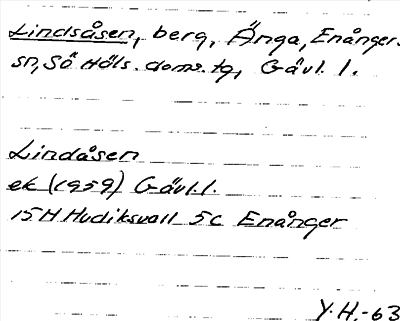 Lindsåsen, berg, Änga, Enånger
sn, Sö Häls. doms. tg, Gävl. l.
Lindåsen
ek (1959) Gävl. l.
15H Hudiksvall 5c Enånger
Y.H.-63